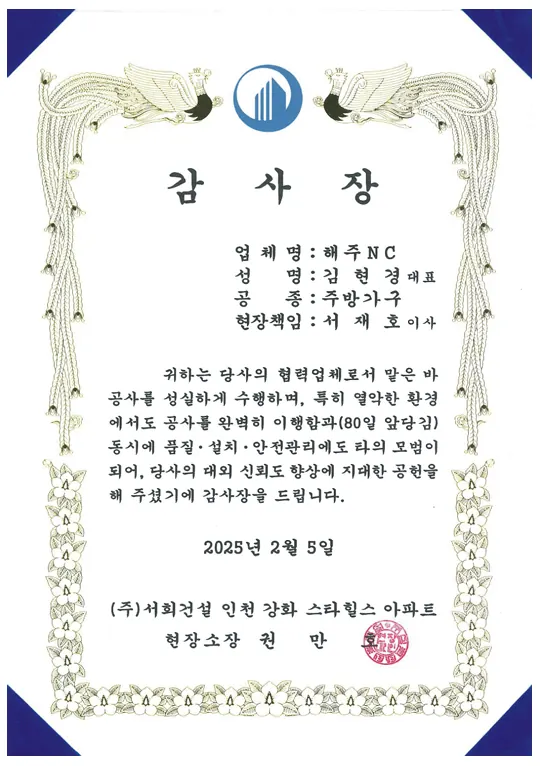 감 사 장
업 체 명 : 해주NC
성 명 : 김 현 경 대표
공 종 : 주방가구
현장책임 : 서 재 호 이사
귀하는 당사의 협력업체로서 맡은 바
공사를 성실하게 수행하며, 특히 열악한 환경
에서도 공사를 완벽히 이행함과(80일 앞당김)
동시에 품질·설치·안전관리에도 타의 모범이
되어, 당사의 대외 신뢰도 향상에 지대한 공헌을
해 주셨기에 감사장을 드립니다.
2025년 2월 5일
(주)서희건설 인천 강화 스타힐스 아파트
현장소장 권 만 호